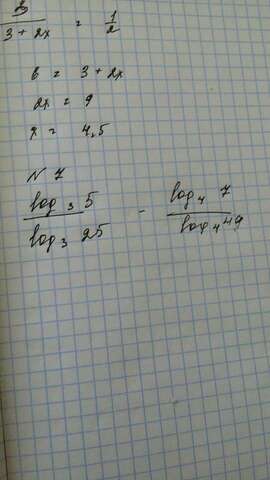 3/(3 + 2x) = 1/2
6 = 3 + 2x
2x = 9
x = 4,5
N 7
log₃ 5 / log₃ 25 - log₄ 7 / log₄ 49